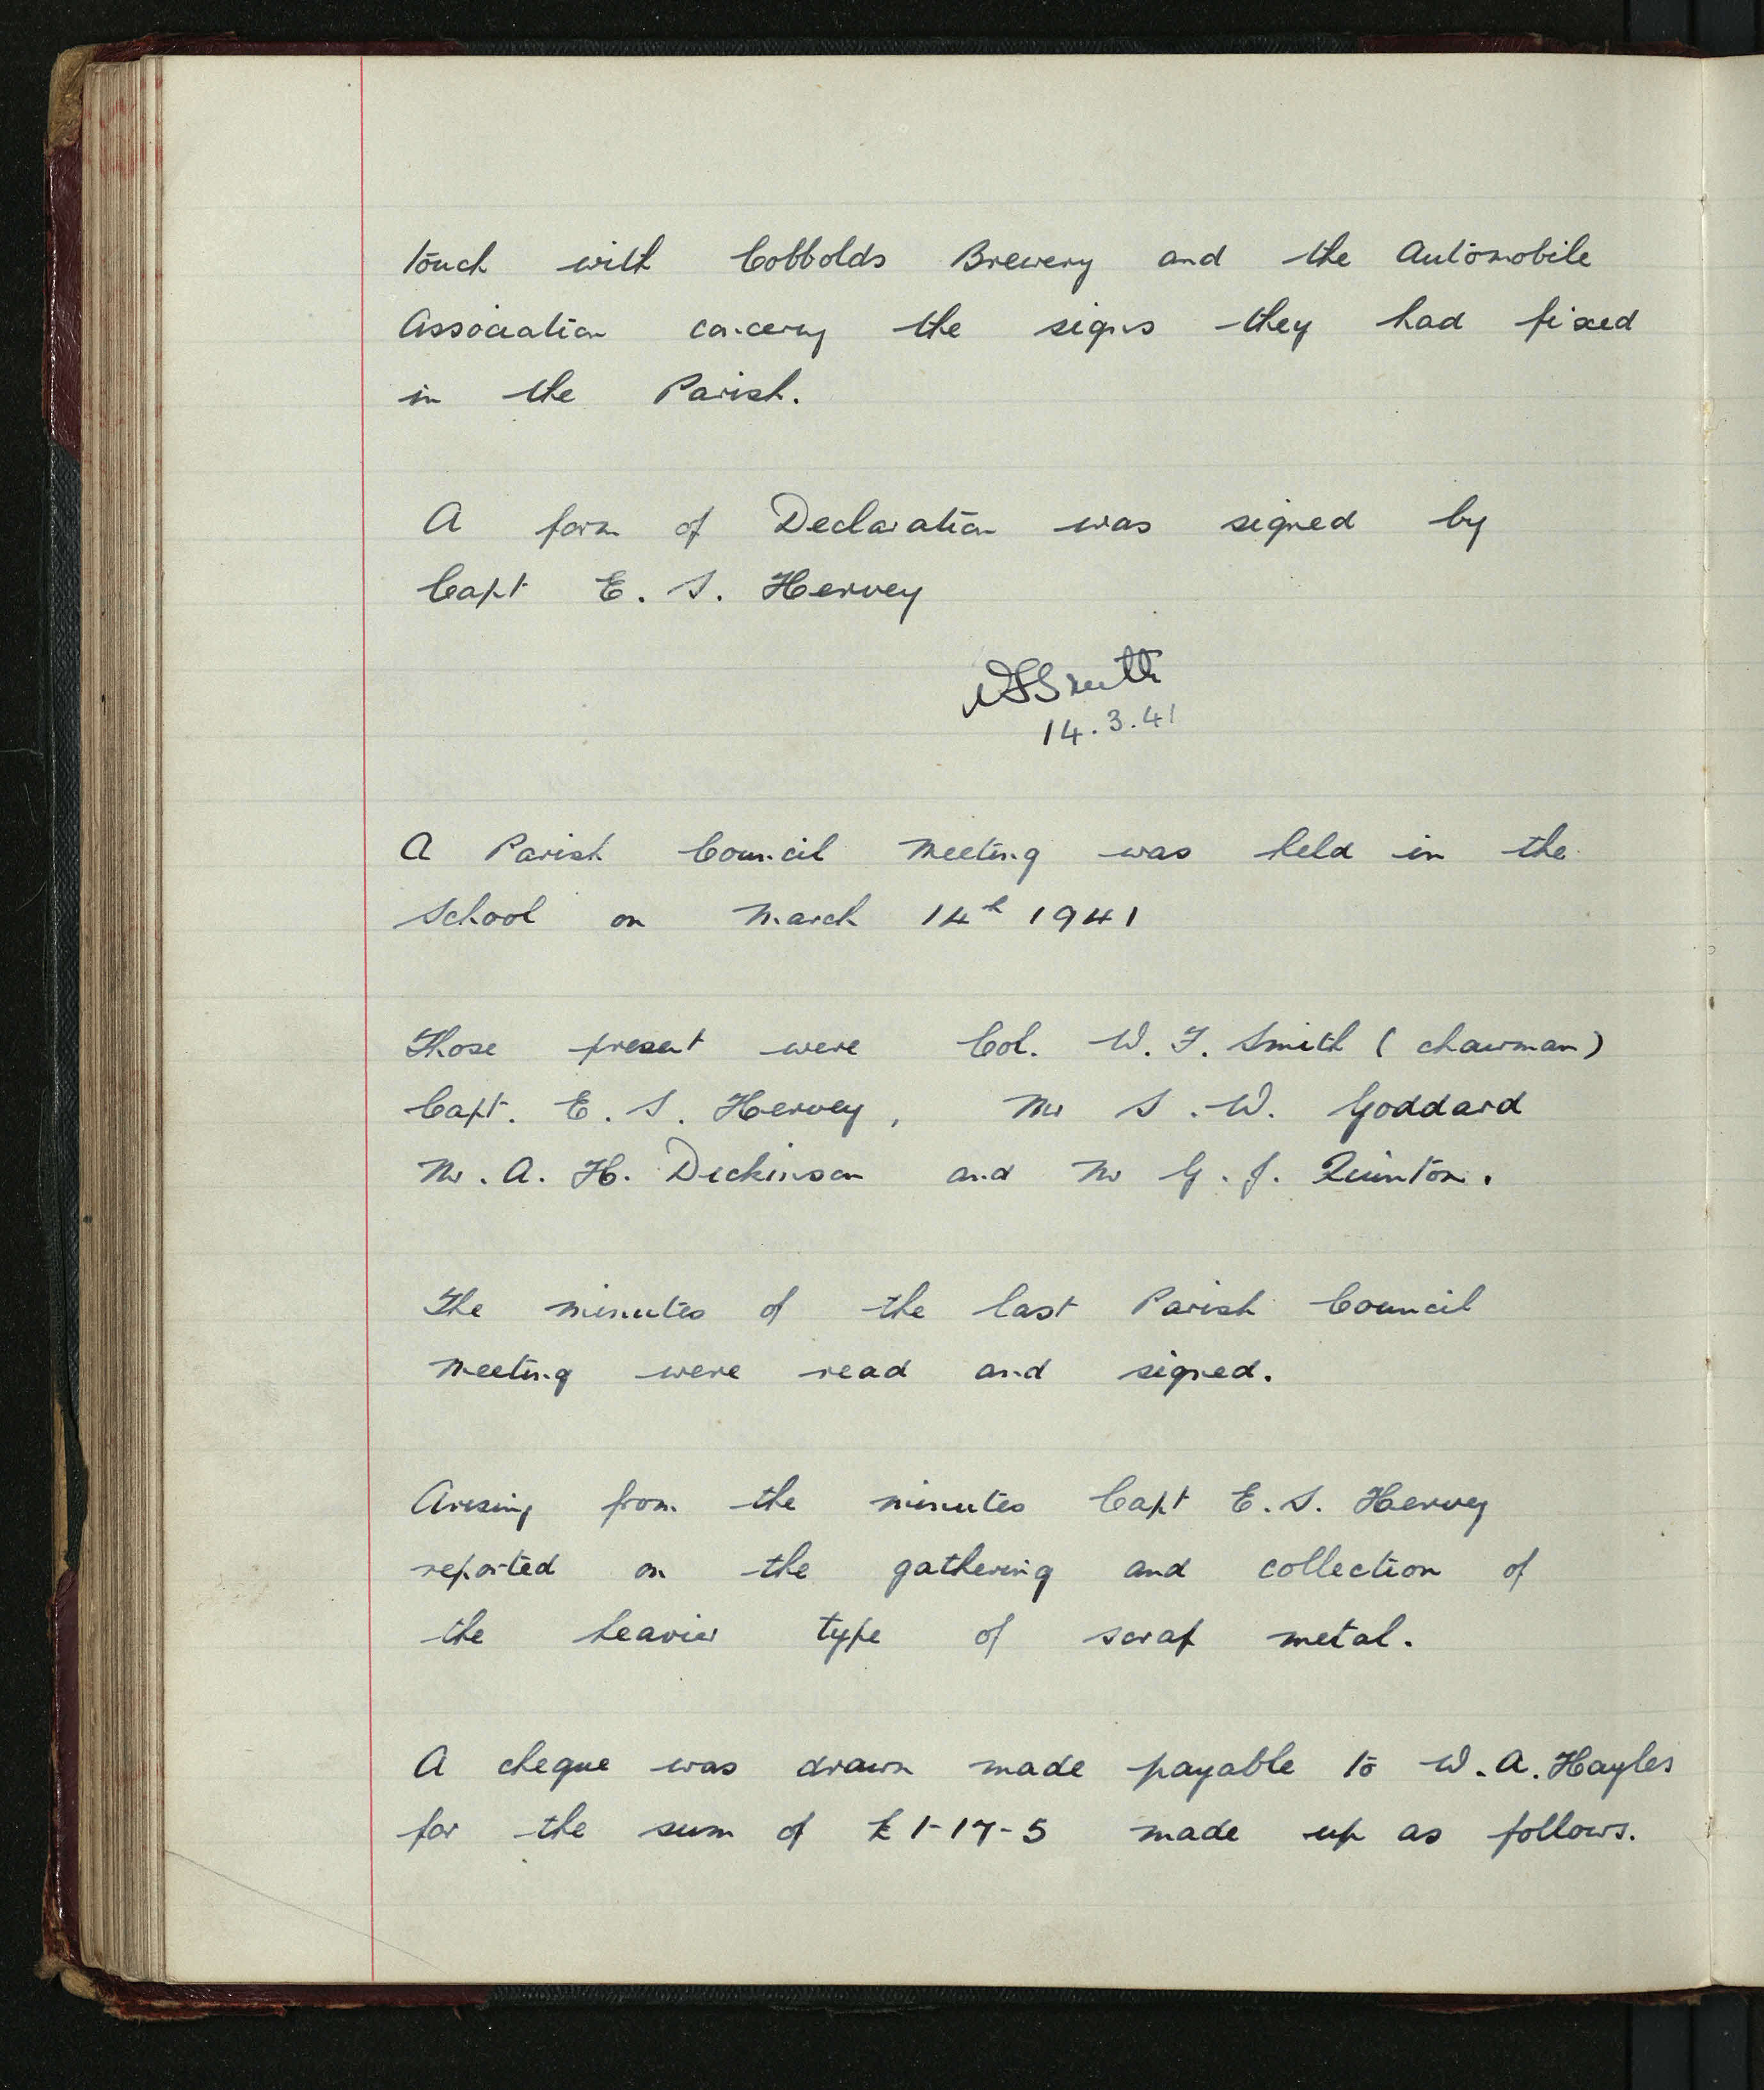 touch with Cobbolds Brewery and the Automobile
Association concerng the signs they had fixed
in the Parish.
A form of Declaration was signed by
Capt E. S. Hervey
WFSmith
14.3.41
A Parish Council Meeting was held in the
School on March 14th 1941
Those present were Col. W. F. Smith (chairman)
Capt. E. S. Hervey, Mr S. W. Goddard
Mr. A. H. Dickinson and Mr G. J. Quinton.
The minutes of the last Parish Council
Meeting were read and signed.
Arising from the minutes Capt E. S. Hervey
reported on the gathering and collection of
the heavier type of scrap metal.
A cheque was drawn made payable to W. A. Hayles
for the sum of £1-17-5 made up as follows.